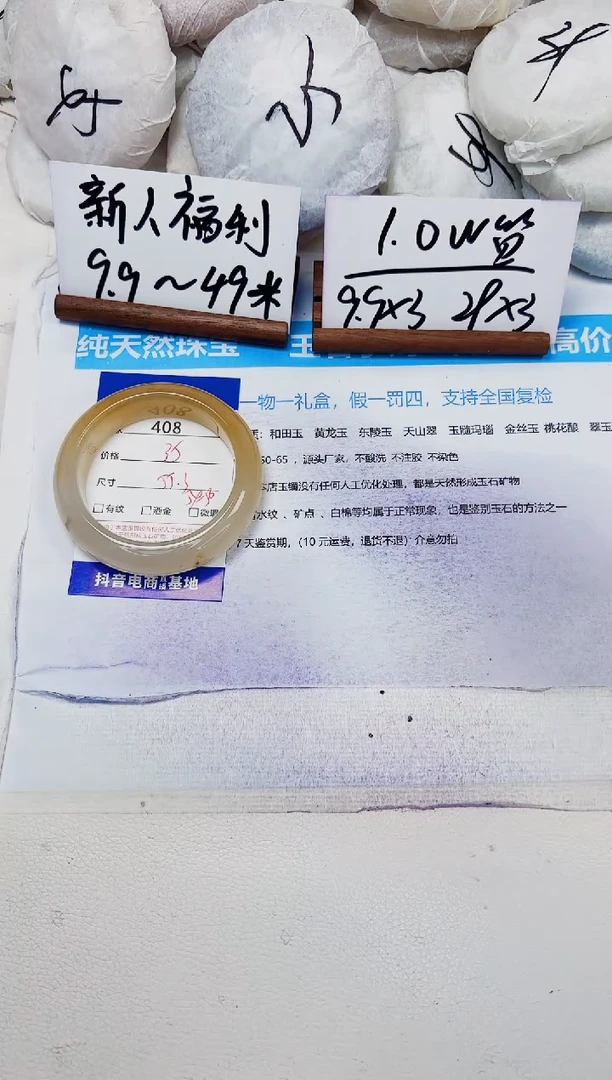 小
新人福利
9.9～49米
1.0W篢
9.9×3 29×3
纯天然珠宝
高价
一物一礼盒，假一罚四，支持全国复检
：和田玉 黄龙玉 东陵玉 天山翠 玉髓玛瑙 金丝玉 桃花酿 翠玉
50-65 ，源头厂家，不酸洗 不注胶 不染色
本店玉镯没有任何人工优化处理，都是天然形成玉石矿物
水纹 、矿点 、白棉等均属于正常现象，也是鉴别玉石的方法之一
7天鉴赏期，（10元运费，退货不退）介意勿拍
408
408
价格 35
尺寸 55.3
□有纹 □洒金 □微瑕
抖音电商 基地